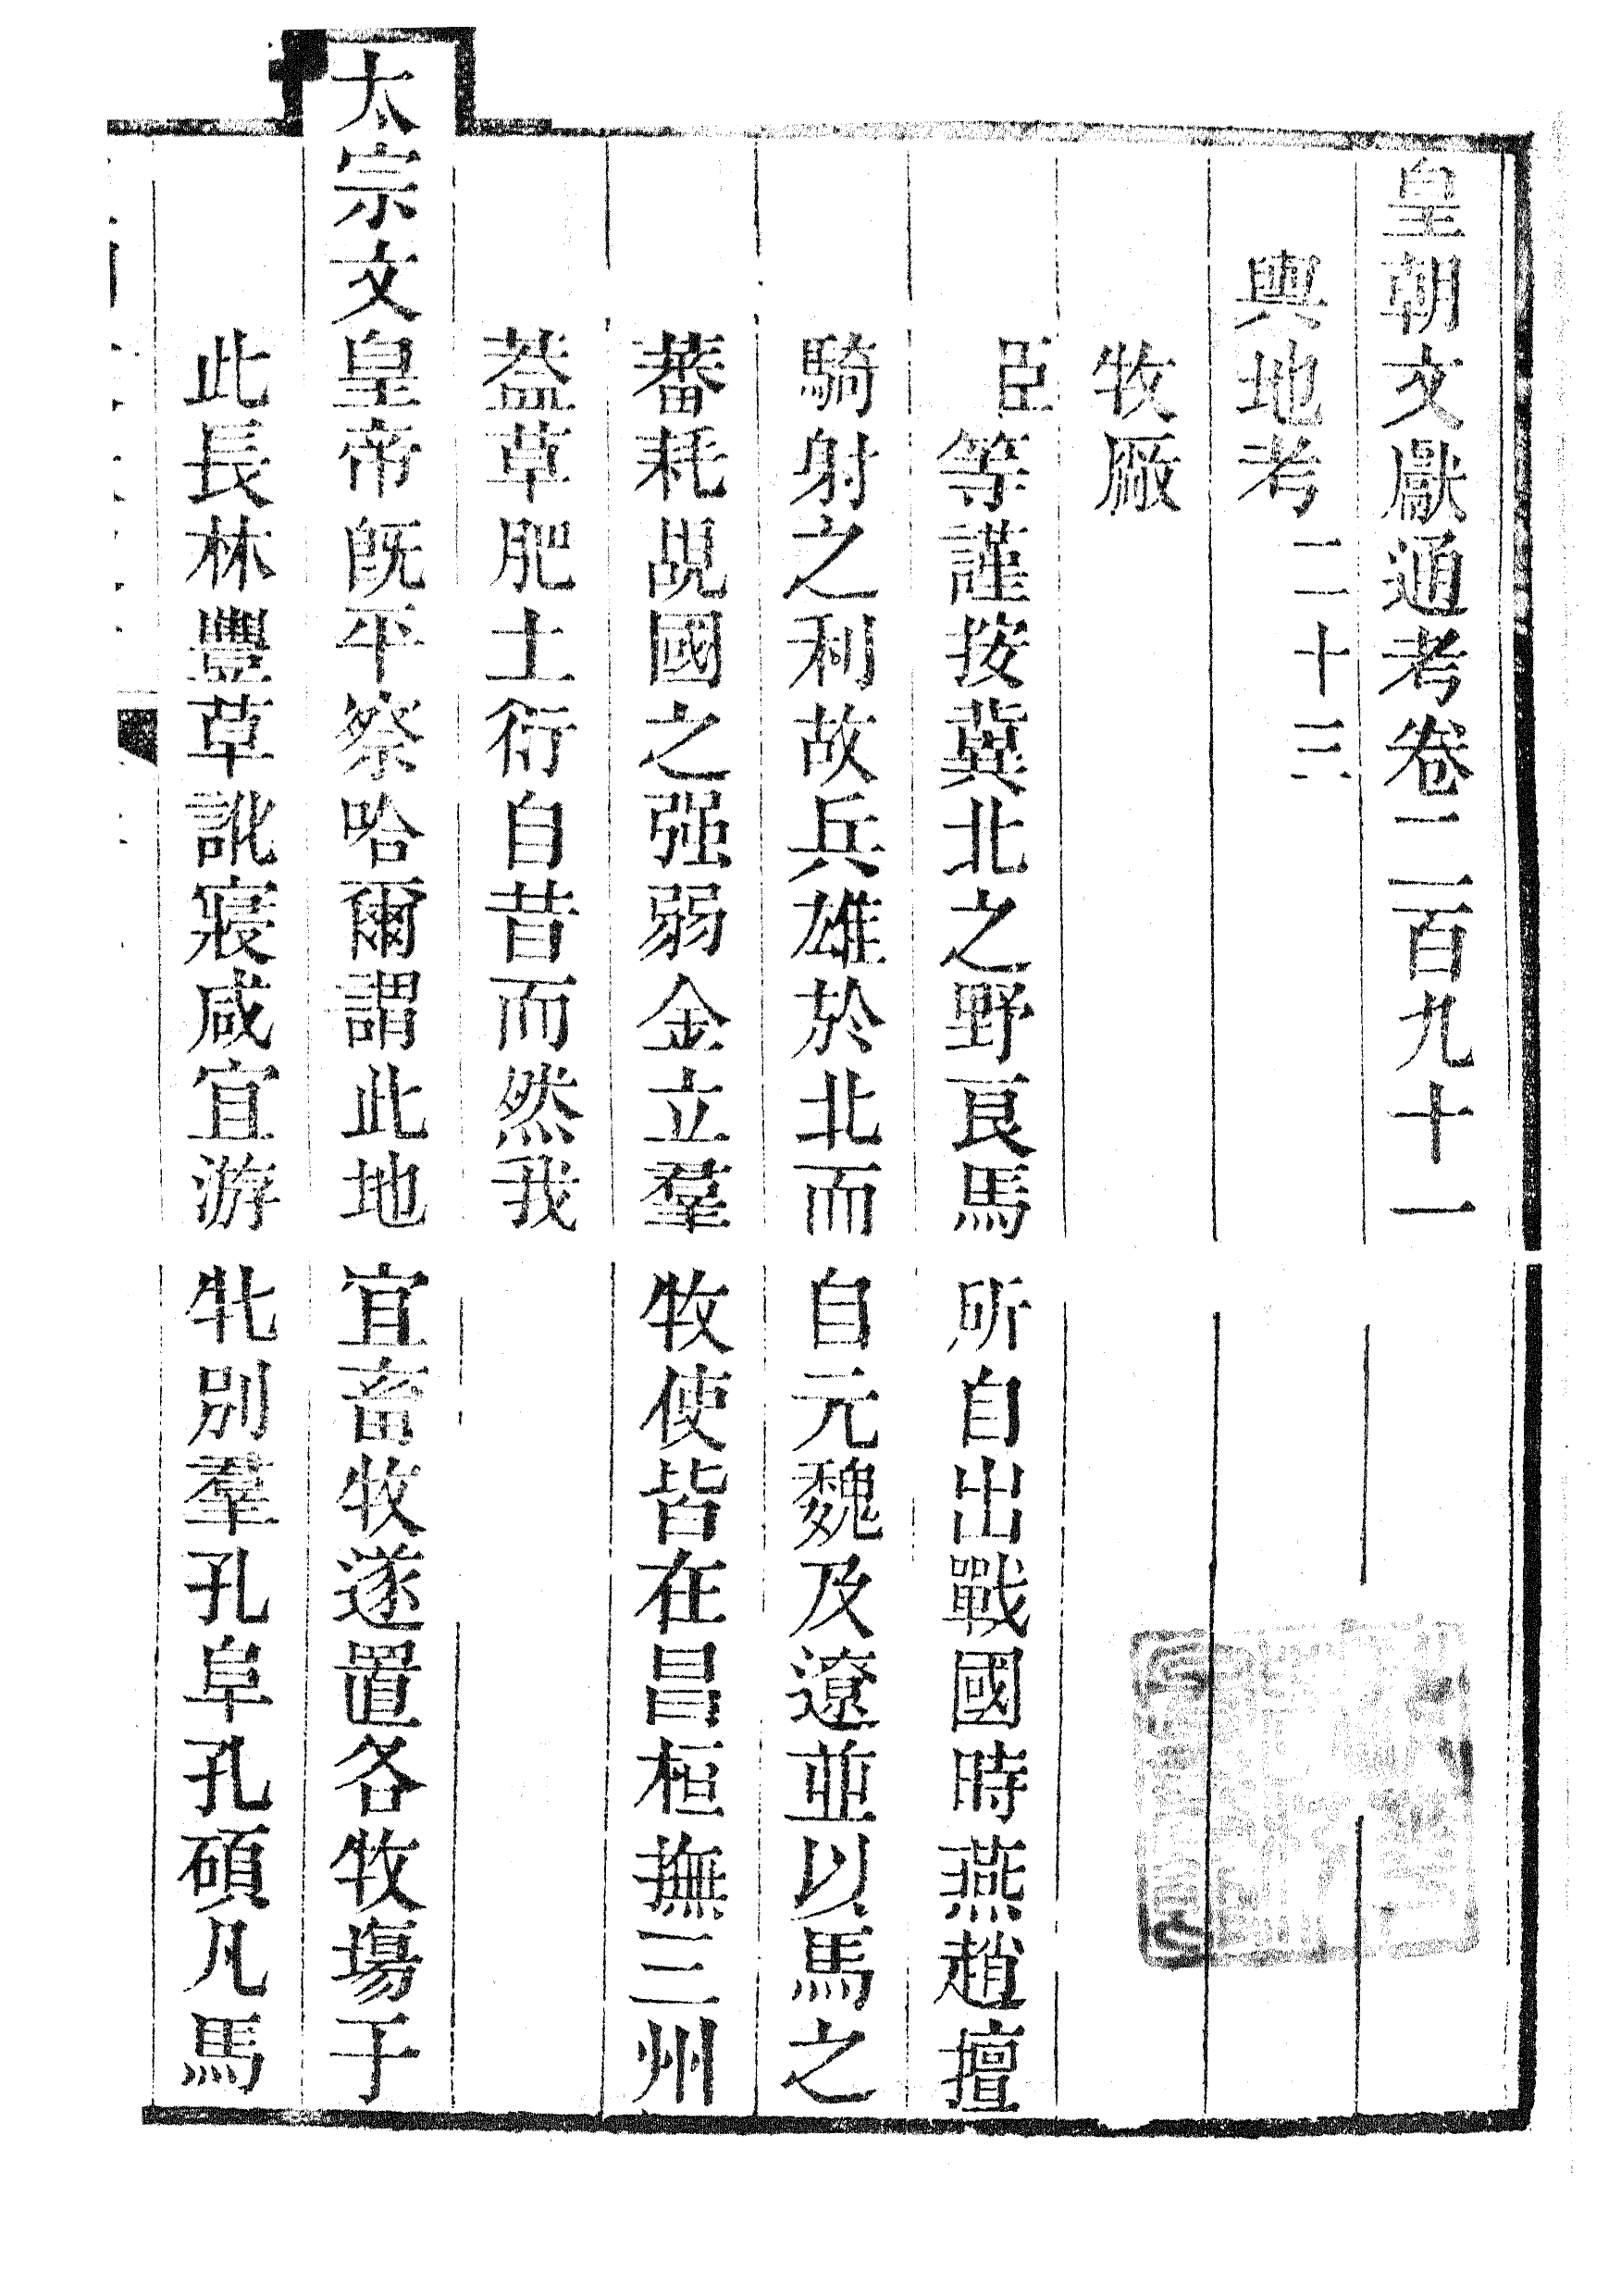 皇朝文獻通考卷二百九十一
輿地考二十三
牧厰
臣等謹按冀北之野良馬所自出戰國時燕趙擅
騎射之利故兵雄於北而自元魏及遼並以馬之
蕃耗覘國之强弱金立羣牧使皆在昌桓撫三州
葢草肥土衍自昔而然我
太宗文皇帝旣平察哈爾謂此地宜畜牧遂置各牧塲于
此長林豐草訛寢咸宜游牝別羣孔阜孔碩凡馬